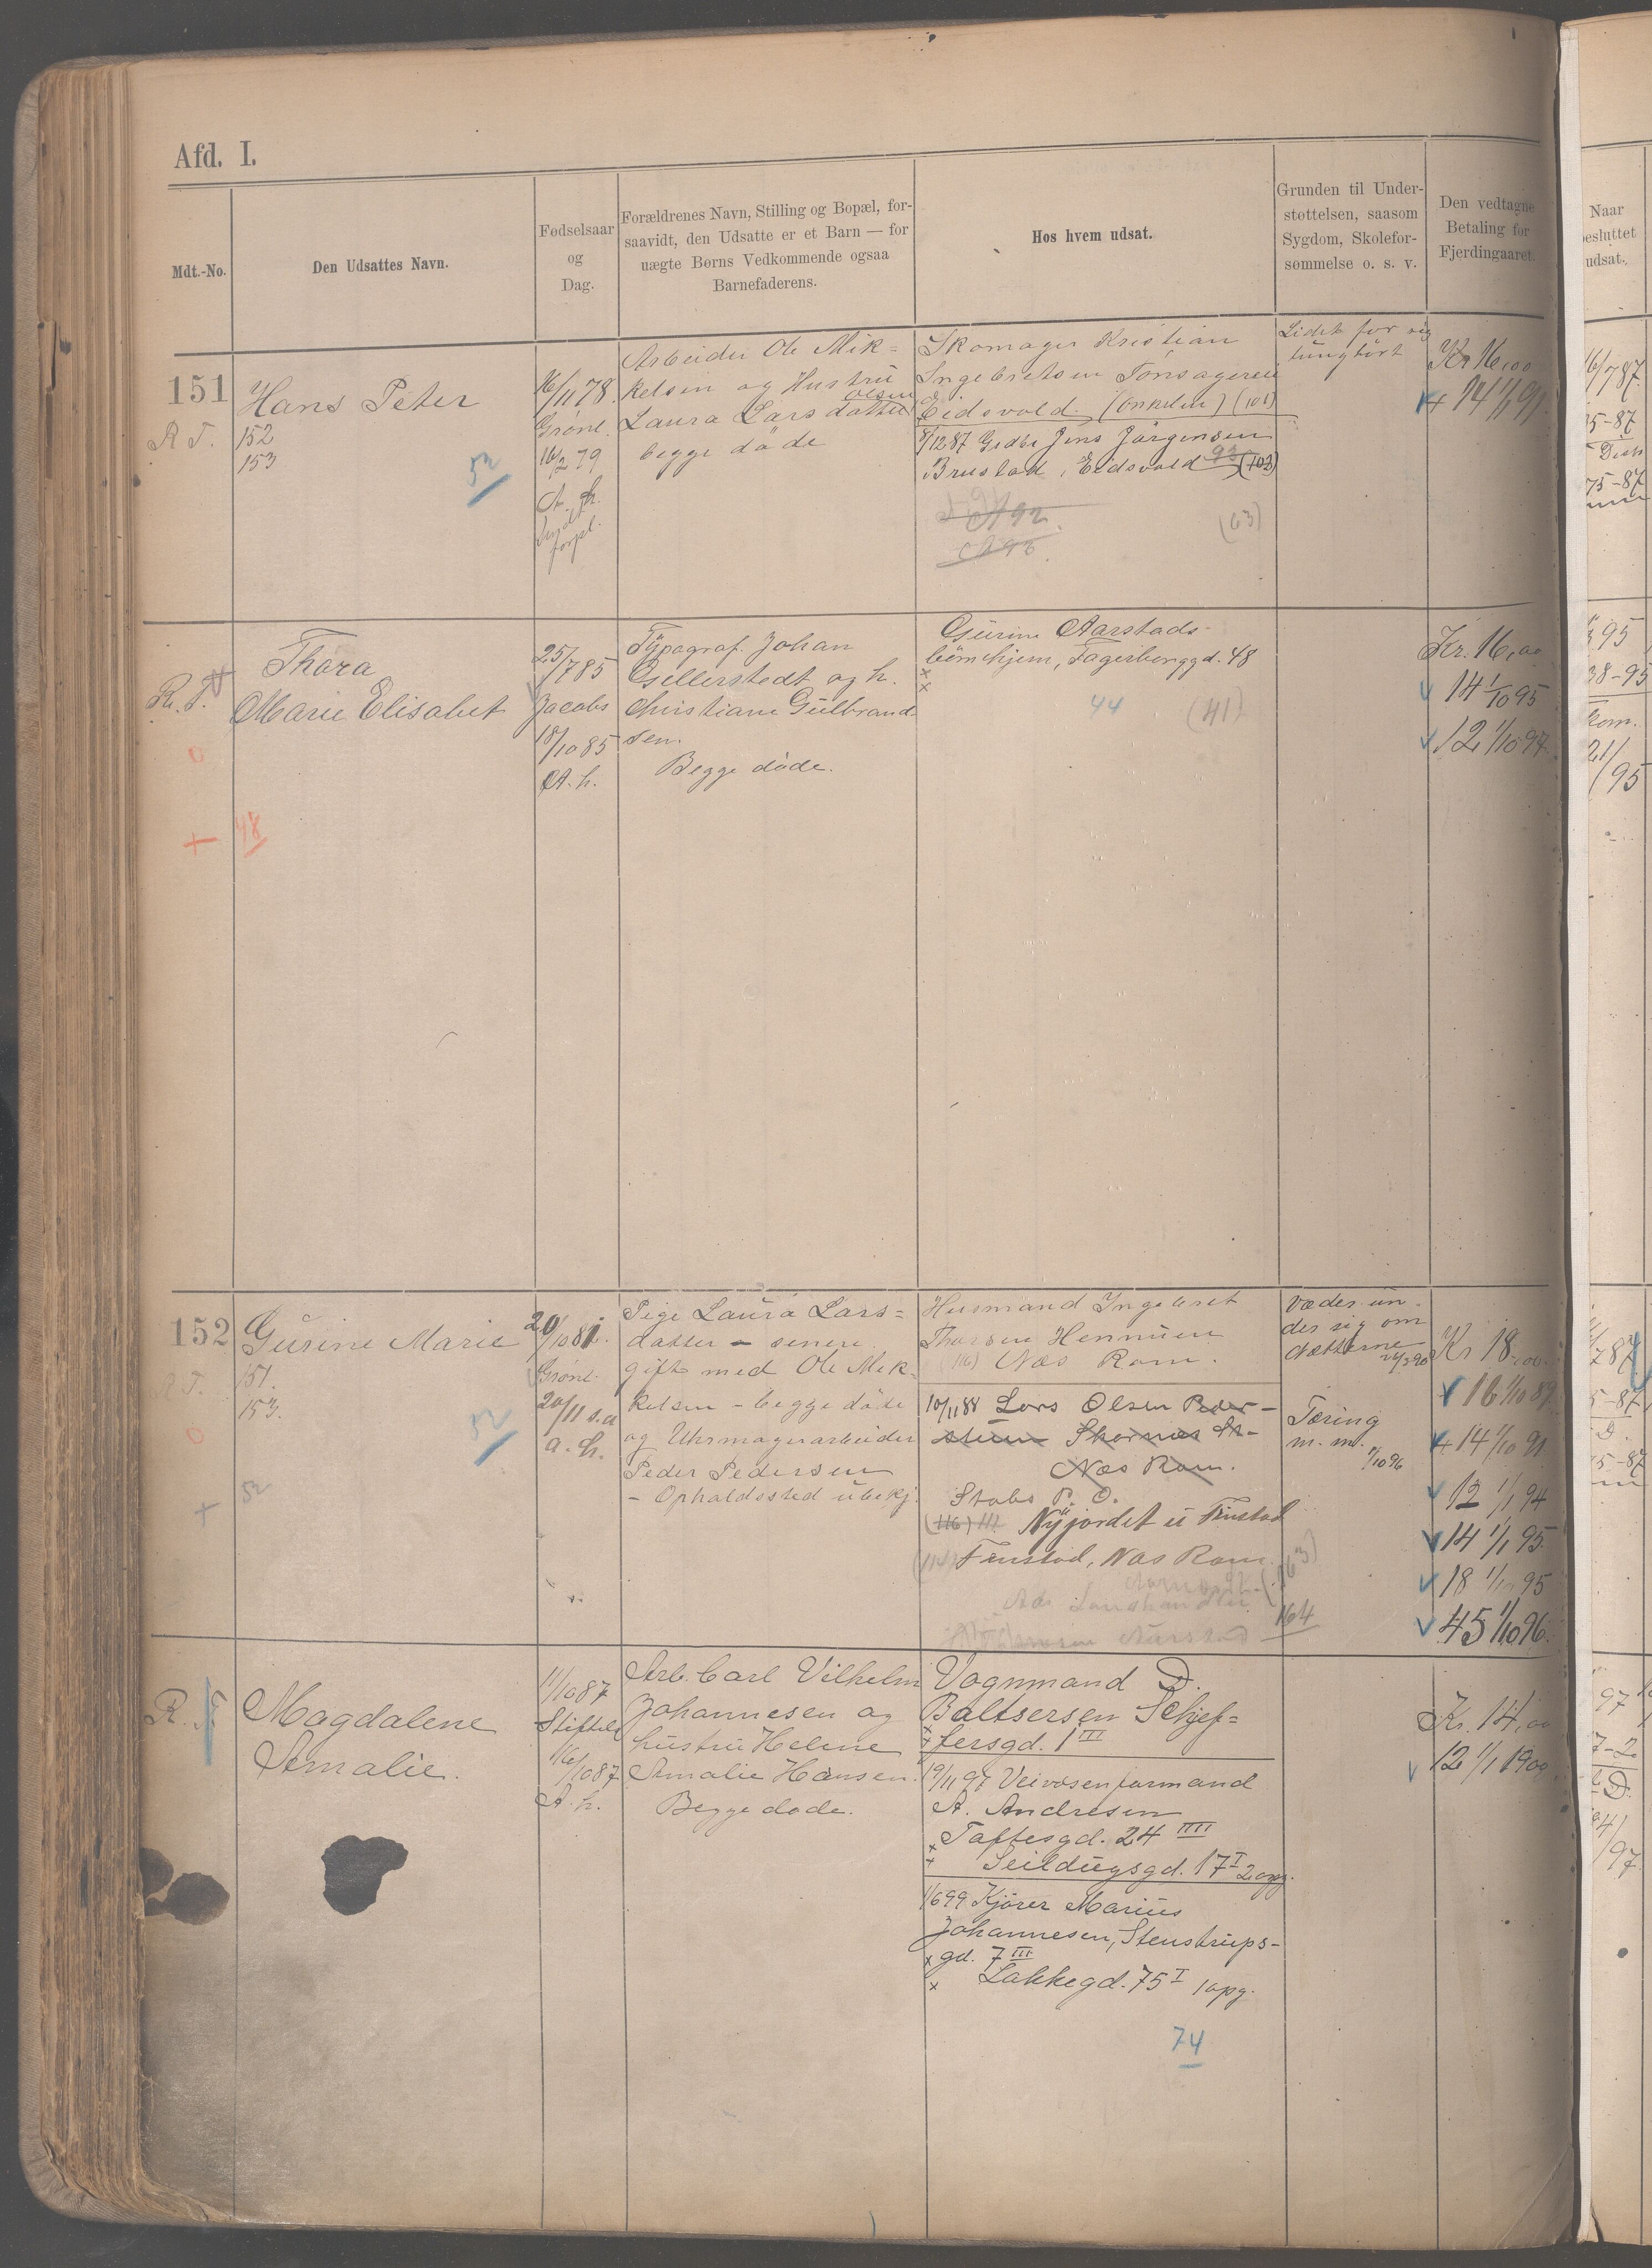 Afd. I.
Mdt.-No.
Den Udsattes Navn.
Fødselsaar
og
Dag.
Forældrenes Navn, Stilling og Bopæl, for-
saavidt, den Udsatte er et Barn — for
uægte Børns Vedkommende ogsaa
Barnefaderens.
Hos hvem udsat.
Grunden til Under-
støttelsen, saasom
Sygdom, Skolefor-
sømmelse o. s. v.
Den vedtagne
Betaling for
Fjerdingaaret.
Naar
besluttet
udsat.
151
R T.
Hans Peter
152
153
52
16/11 78.
Grønl.
16/2 79
A. h.
forpl.
Arbeider Ole Mik=
kelsen og Hustru
olsen
Laura Larsdatter
begge døde
Skomager Kristian
Ingebretsen Tønsageren
Eidsvold. (onkelen) (101)
8/12 87 Gedbr Jens Jørgensen
Brustad, Eidsvold 93 (102)
92
(63)
Lidt for sig
tunghørt
Kr 16,00
14 1/1 91
16/7 87
R. T.
Thora
Marie Elisabet
48
25/7 85
Jacobs
18/10 85
A. h.
Typograf Johan
Gellerstedt og h.
Christiane Gulbrand-
sen.
Begge døde.
Gurine Aarstads
børnehjem, Fagerborggd. 48
44 (41)
Kr. 16,00
14 1/10 95
12 1/10 97
152
Gurine Marie
151.
153.
52
20/10 81.
Grønl.
20/11 s.a
a. h.
Pige Laura Lars=
datter – senere
gift med Ole Mik-
kelsen – begge døde
og Uhrmagerarbeider
Peder Pedersen
– Opholdssted ubekj.
Husmand Ingebret
Thorsen Hennuen
(116) Næs Rom.
10/11 88 Lars Olsen Peder-
Skarnæs St-
Næs Rom.
Stabs P. O.
(116) 111 Nyjordet u Finstad
Fenstad, Næs Rom.
(163)
164
Væder un-
der sig om
Nætterne
24/3 90
Tæring
m. m.
1/10 96
Kr 18,00
16 1/10 89
14 1/10 91
12 1/1 94
14 1/1 95
18 1/10 95
45 1/10 96.
R. T.
Magdalene
Amalie.
11/10 87
16/10 87
A. h.
Arb. Carl Vilhelm
Johannesen og
hustru Helene
Amalie Hansen.
Begge døde.
Vognmand D.
Baltsersen Schjef=
fersgd. 1 III
19/11 97 Veivæsenformand
A. Andresen
Toftesgd. 24 IIII
Seildugsgd. 17 I 2 opg.
1/6 99 Kjører Marius
Johannesen, Stenstrups-
gd. 7 III
Lakkegd. 75 I 1 opg.
74
Kr. 14,00
12 1/1 1900